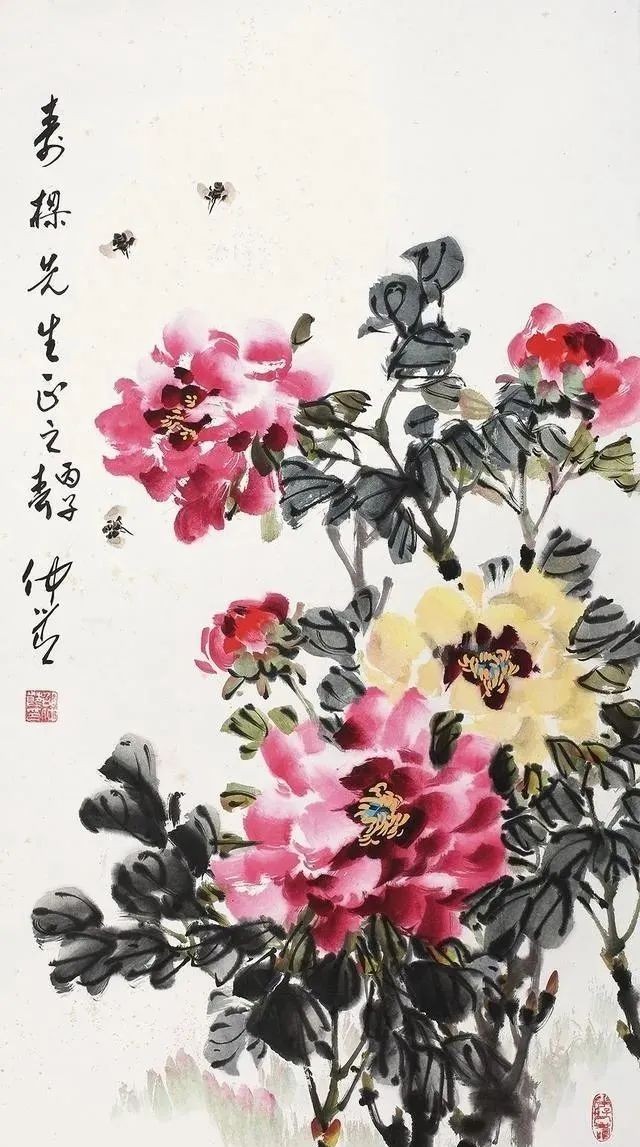 寿樑先生正之
丙子春
仲节